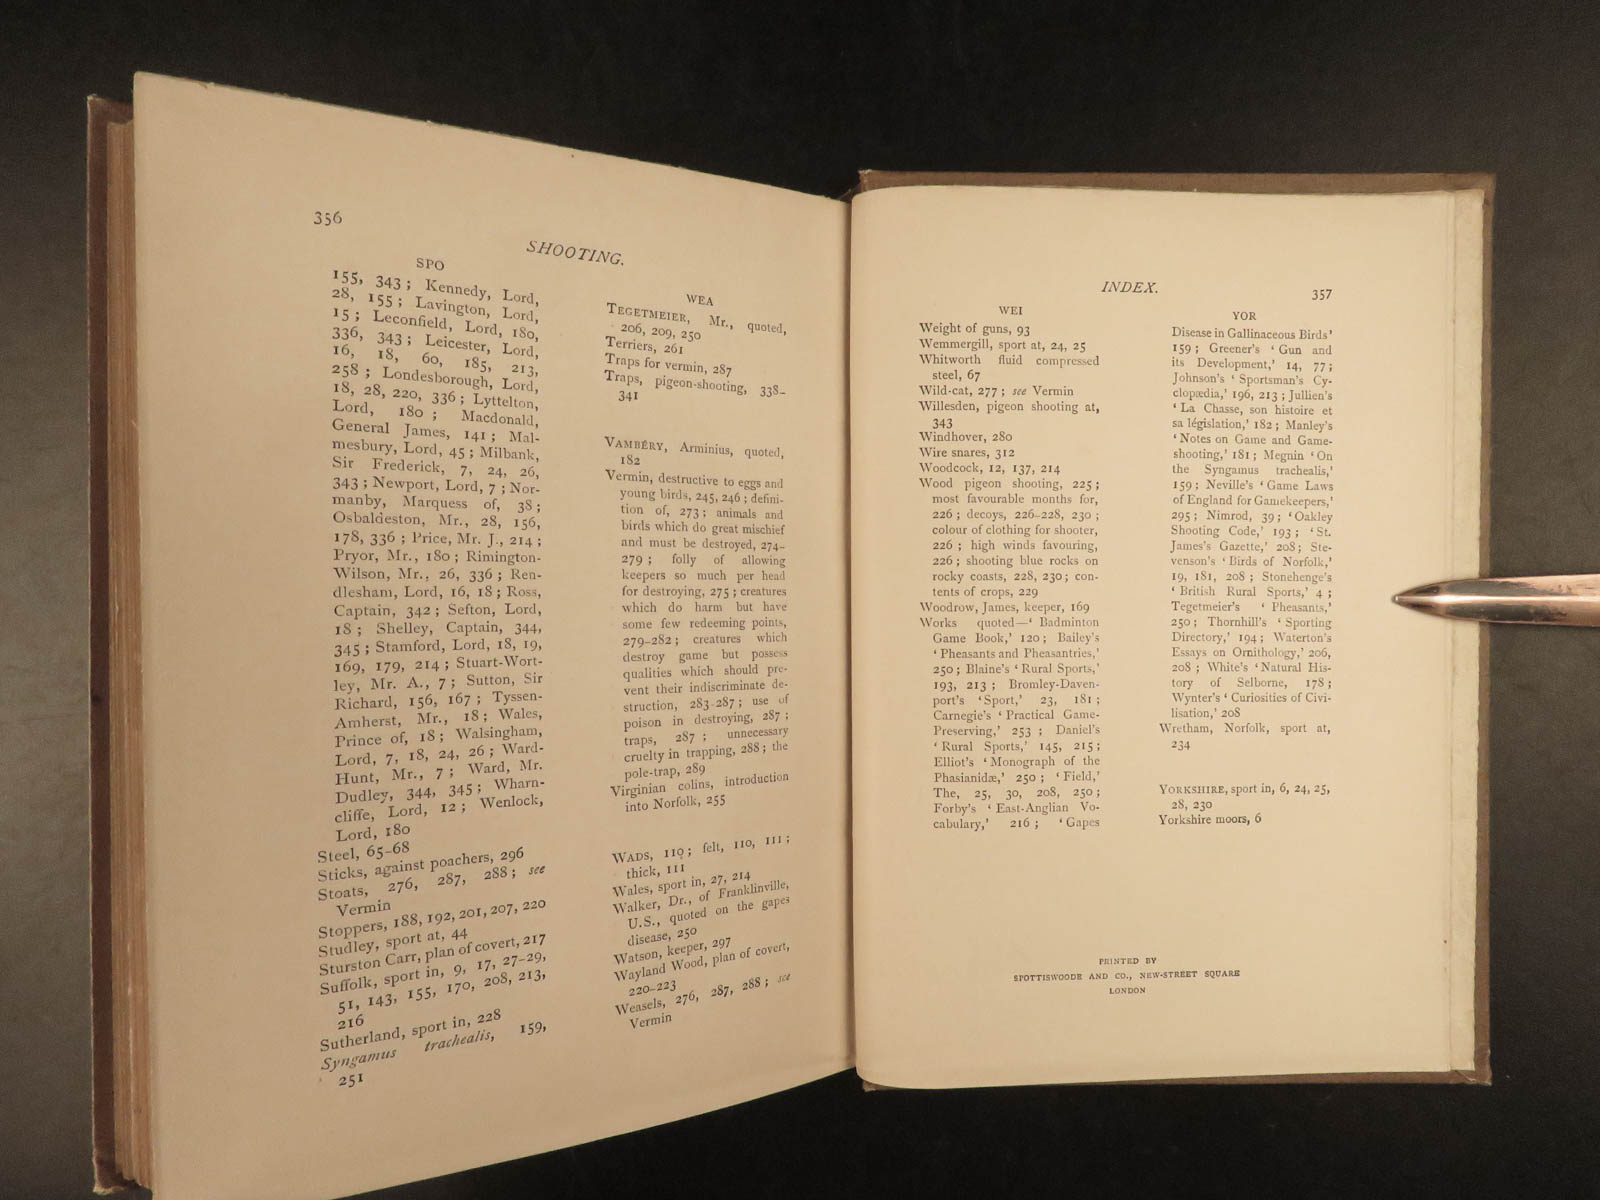 356
SHOOTING.
SPO
155, 343 ; Kennedy, Lord,
28, 155 ; Lavington, Lord,
15 ; Leconfield, Lord, 180,
336, 343 ; Leicester, Lord,
16, 18, 60, 185, 213,
258 ; Londesborough, Lord,
18, 28, 220, 336 ; Lyttelton,
Lord, 180 ; Macdonald,
General James, 141 ; Mal-
mesbury, Lord, 45 ; Milbank,
Sir Frederick, 7, 24, 26,
343 ; Newport, Lord, 7 ; Nor-
manby, Marquess of, 38 ;
Osbaldeston, Mr., 28, 156,
178, 336 ; Price, Mr. J., 214 ;
Pryor, Mr., 180 ; Rimington-
Wilson, Mr., 26, 336 ; Ren-
dlesham, Lord, 16, 18 ; Ross,
Captain, 342 ; Sefton, Lord,
18 ; Shelley, Captain, 344,
345 ; Stamford, Lord, 18, 19,
169, 179, 214 ; Stuart-Wort-
ley, Mr. A., 7 ; Sutton, Sir
Richard, 156, 167 ; Tyssen-
Amherst, Mr., 18 ; Wales,
Prince of, 18 ; Walsingham,
Lord, 7, 18, 24, 26 ; Ward-
Hunt, Mr., 7 ; Ward, Mr.
Dudley, 344, 345 ; Wharn-
cliffe, Lord, 12 ; Wenlock,
Lord, 180
Steel, 65-68
Sticks, against poachers, 296
Stoats, 276, 287, 288 ; see
Vermin
Stoppers, 188, 192, 201, 207, 220
Studley, sport at, 44
Sturston Carr, plan of covert, 217
Suffolk, sport in, 9, 17, 27-29,
51, 143, 155, 170, 208, 213,
216
Sutherland, sport in, 228
Syngamus trachealis, 159,
251
WEA
TEGETMEIER, Mr., quoted,
206, 209, 250
Terriers, 261
Traps for vermin, 287
Traps, pigeon-shooting, 338-
341
VAMBÉRY, Arminius, quoted,
182
Vermin, destructive to eggs and
young birds, 245, 246 ; defini-
tion of, 273 ; animals and
birds which do great mischief
and must be destroyed, 274-
279 ; folly of allowing
keepers so much per head
for destroying, 275 ; creatures
which do harm but have
some few redeeming points,
279-282 ; creatures which
destroy game but possess
qualities which should pre-
vent their indiscriminate de-
struction, 283-287 ; use of
poison in destroying, 287 ;
traps, 287 ; unnecessary
cruelty in trapping, 288 ; the
pole-trap, 289
Virginian colins, introduction
into Norfolk, 255
WADS, 110 ; felt, 110, 111 ;
thick, 111
Wales, sport in, 27, 214
Walker, Dr., of Franklinville,
U.S., quoted on the gapes
disease, 250
Watson, keeper, 297
Wayland Wood, plan of covert,
220-223
Weasels, 276, 287, 288 ; see
Vermin
INDEX.
357
WEI
Weight of guns, 93
Wemmergill, sport at, 24, 25
Whitworth fluid compressed
steel, 67
Wild-cat, 277 ; see Vermin
Willesden, pigeon shooting at,
343
Windhover, 280
Wire snares, 312
Woodcock, 12, 137, 214
Wood pigeon shooting, 225 ;
most favourable months for,
226 ; decoys, 226-228, 230 ;
colour of clothing for shooter,
226 ; high winds favouring,
226 ; shooting blue rocks on
rocky coasts, 228, 230 ; con-
tents of crops, 229
Woodrow, James, keeper, 169
Works quoted—‘ Badminton
Game Book,’ 120 ; Bailey's
‘ Pheasants and Pheasantries,’
250 ; Blaine's ‘ Rural Sports,’
193, 213 ; Bromley-Daven-
port's ‘ Sport,’ 23, 181 ;
Carnegie's ‘ Practical Game-
Preserving,’ 253 ; Daniel's
‘ Rural Sports,’ 145, 215 ;
Elliot's ‘ Monograph of the
Phasianidæ,’ 250 ; ‘ Field,’
The, 25, 30, 208, 250 ;
Forby's ‘ East-Anglian Vo-
cabulary,’ 216 ; ‘ Gapes
YOR
Disease in Gallinaceous Birds’
159 ; Greener's ‘ Gun and
its Development,’ 14, 77 ;
Johnson's ‘ Sportsman's Cy-
clopædia,’ 196, 213 ; Jullien's
‘ La Chasse, son histoire et
sa législation,’ 182 ; Manley's
‘ Notes on Game and Game-
shooting,’ 181 ; Megnin ‘ On
the Syngamus trachealis,’
159 ; Neville's ‘ Game Laws
of England for Gamekeepers,’
295 ; Nimrod, 39 ; ‘ Oakley
Shooting Code,’ 193 ; ‘ St.
James's Gazette,’ 208 ; Ste-
venson's ‘ Birds of Norfolk,’
19, 181, 208 ; Stonehenge's
‘ British Rural Sports,’ 4 ;
Tegetmeier's ‘ Pheasants,’
250 ; Thornhill's ‘ Sporting
Directory,’ 194 ; Waterton's
Essays on Ornithology,’ 206,
208 ; White's ‘ Natural His-
tory of Selborne, 178 ;
Wynter's ‘ Curiosities of Civi-
lisation,’ 208
Wretham, Norfolk, sport at,
234
YORKSHIRE, sport in, 6, 24, 25,
28, 230
Yorkshire moors, 6
PRINTED BY
SPOTTISWOODE AND CO., NEW-STREET SQUARE
LONDON